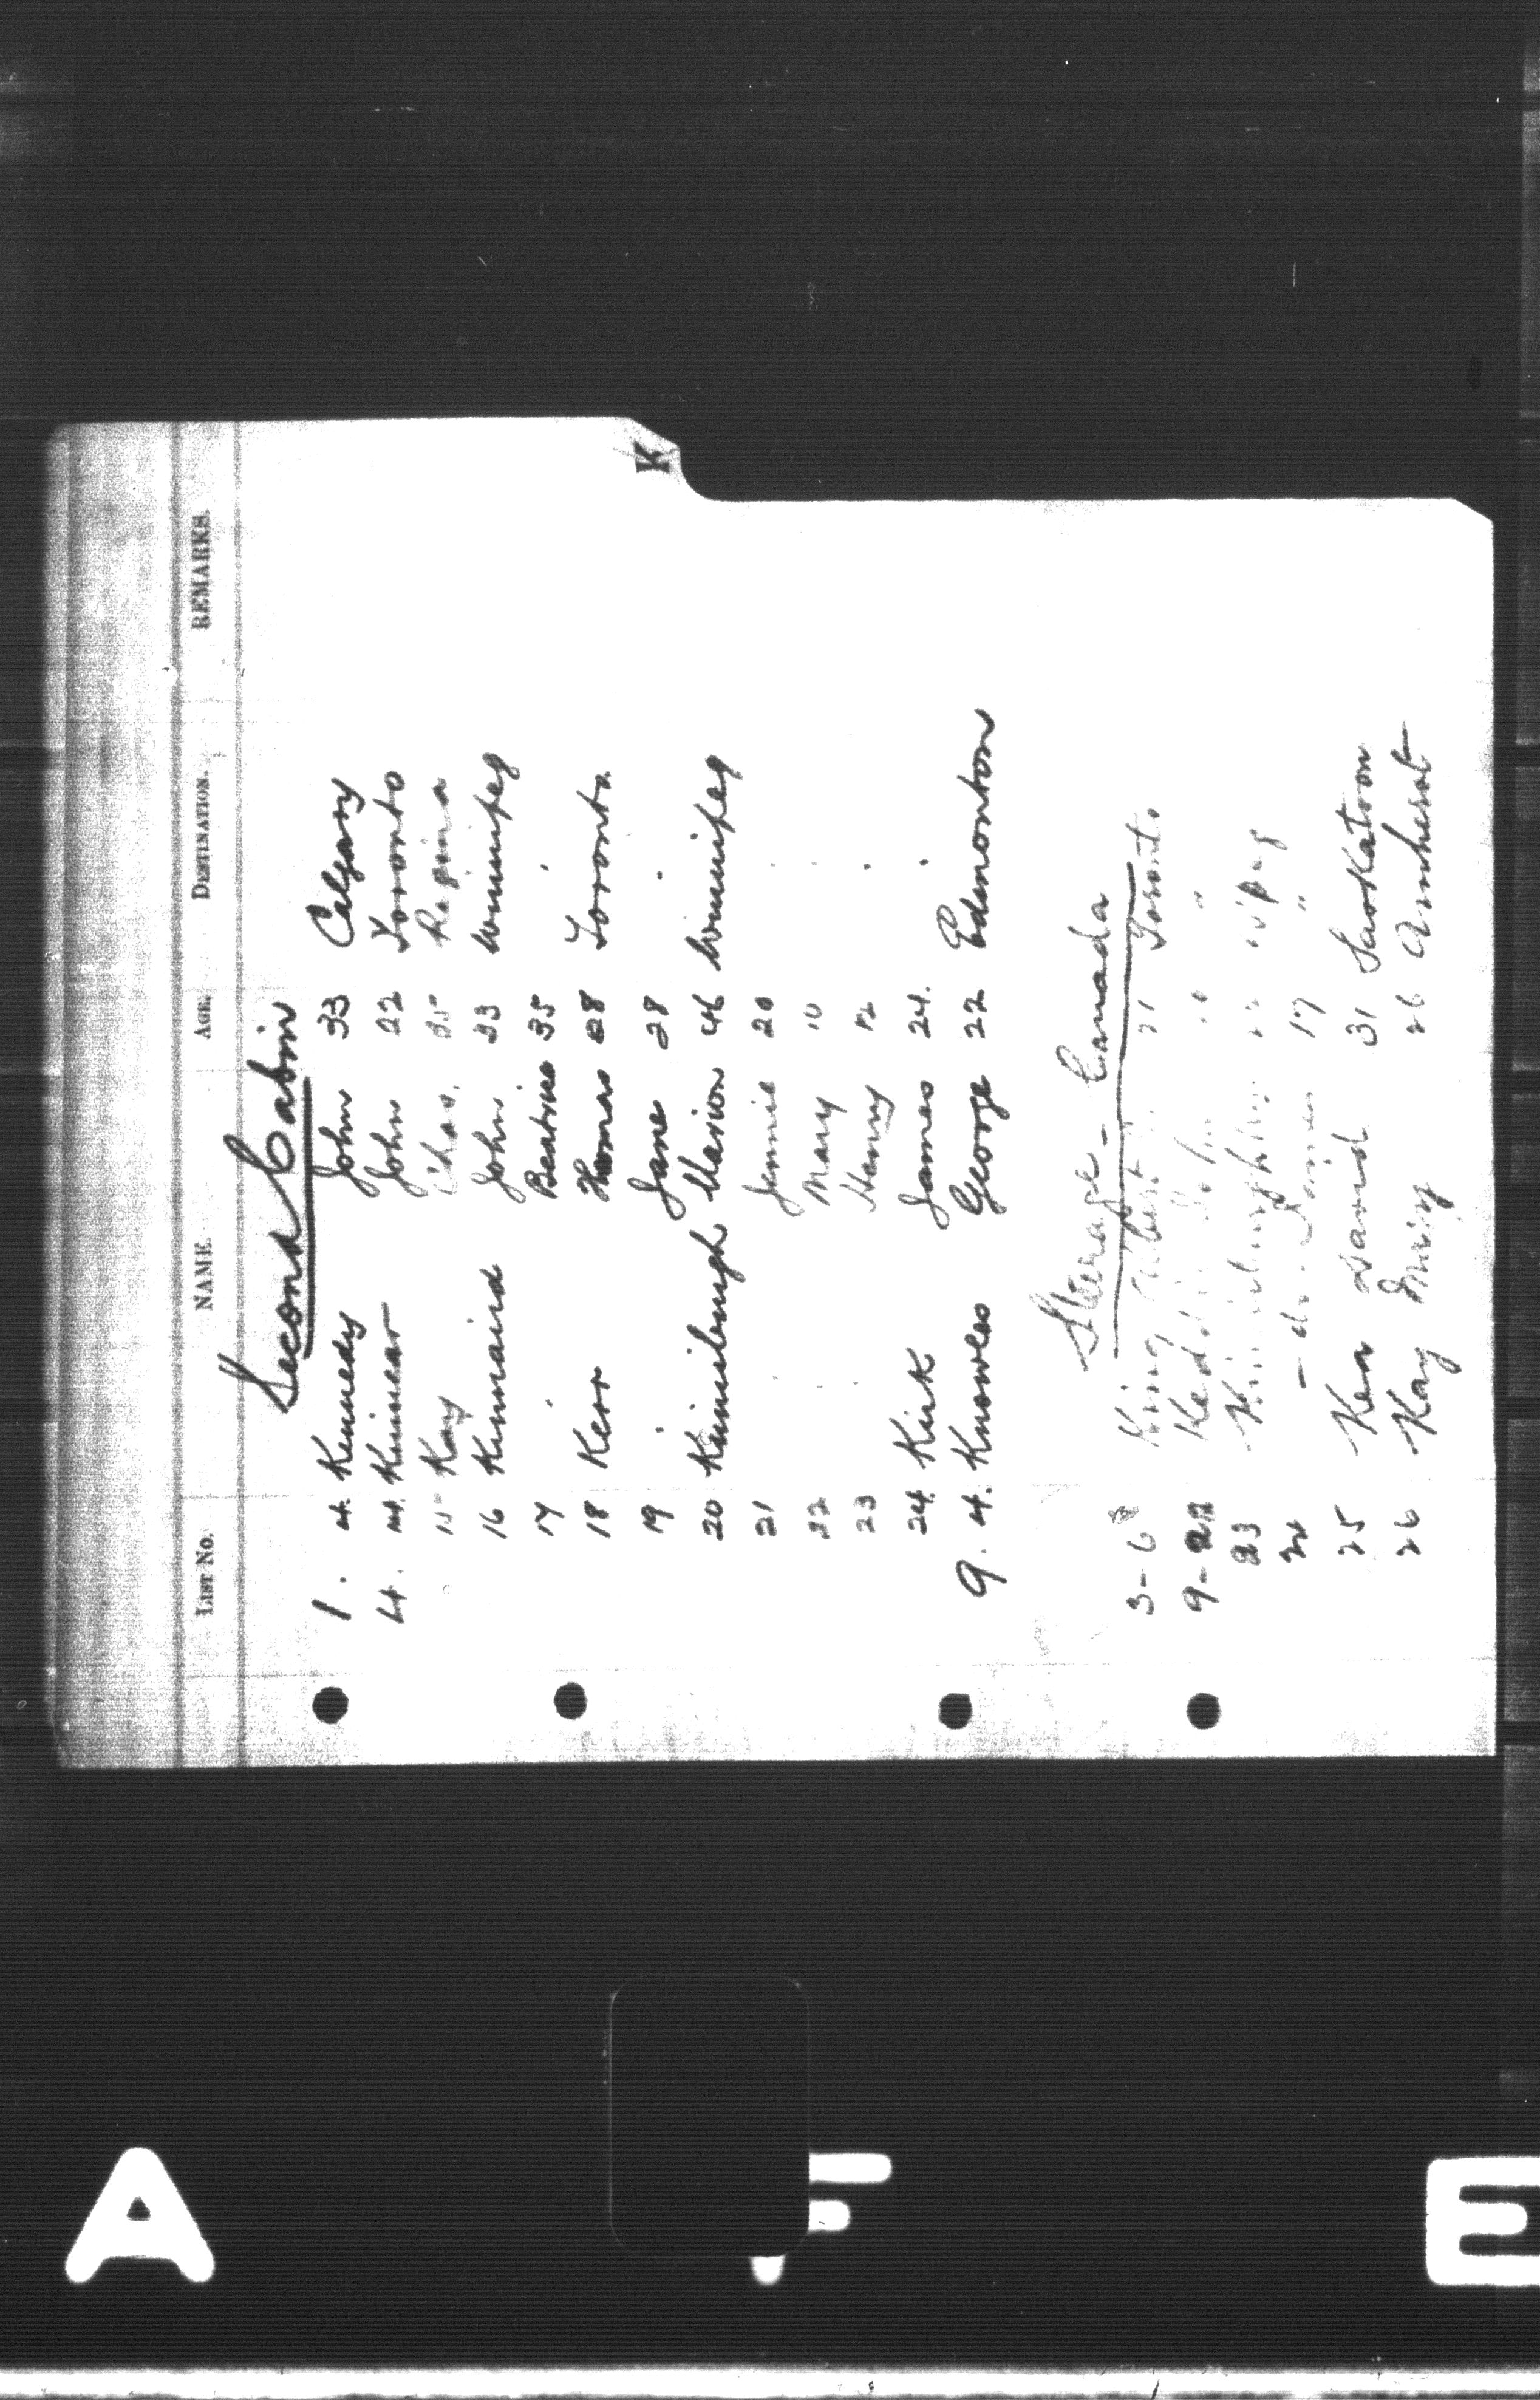 K
LIST No. NAME. AGE. DESTINATION. REMARKS.
Second Cabin
1. 4. Kennedy John 33 Calgary
4. 14. Kinnear John 22 Toronto
15 Kay Chas. 35 Regina
16 Kinnaird John 33 Winnipeg
17 " Beatrice 35 "
18 Kerr Thomas 28 Toronto
19 " Jane 28 "
20 Kinniburgh Marion 46 Winnipeg
21 " Jennie 20 "
22 " Mary 10 "
23 " Henry 12 "
24. Kirk James 24. "
9. 4. Knowles George 22 Edmonton
Steerage - Canada
3-6 King Albert 21 Toronto
9-22 John "
23 W'peg
24 - do - 17 "
25 Ker David 31 Saskatoon
26 Kay Mary 26 Amherst
A F E